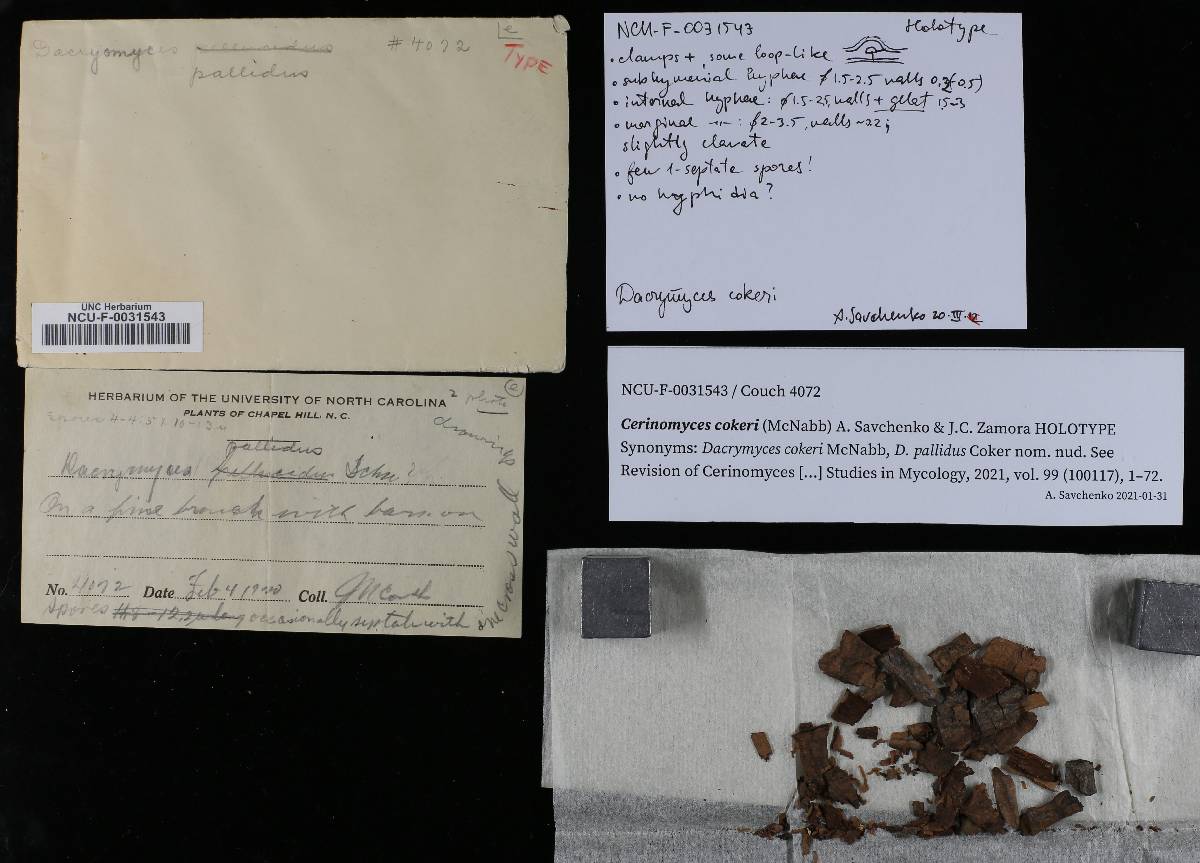 Dacryomyces pellucidus #4072
pallidus
e
TYPE
UNC Herbarium
NCU-F-0031543
HERBARIUM OF THE UNIVERSITY OF NORTH CAROLINA
PLANTS OF CHAPEL HILL, N. C.
2 photo
e
drawings
Spores 4-4.5 x 10-13 µ
pallidus
Dacrymyces Schw ?
On a pine branch with bark on
No. 4072 Date Feb 4 1920 Coll. J N Couch
spores occasionally septate with
one cross wall
NCU-F-0031543 Holotype
• clamps +, some loop-like
• subhymenial hyphae ∅ 1.5-2.5 walls
• internal hyphae: ∅ 1.5-2.5, walls + gelat 1.5-3
• marginal -"-: ∅ 2-3.5, walls
slightly clavate
• few 1-septate spores!
• no hyphidia?
Dacrymyces cokeri
A. Savchenko 20.IV.
NCU-F-0031543 / Couch 4072
Cerinomyces cokeri (McNabb) A. Savchenko & J.C. Zamora HOLOTYPE
Synonyms: Dacrymyces cokeri McNabb, D. pallidus Coker nom. nud. See
Revision of Cerinomyces [...] Studies in Mycology, 2021, vol. 99 (100117), 1–72.
A. Savchenko 2021-01-31